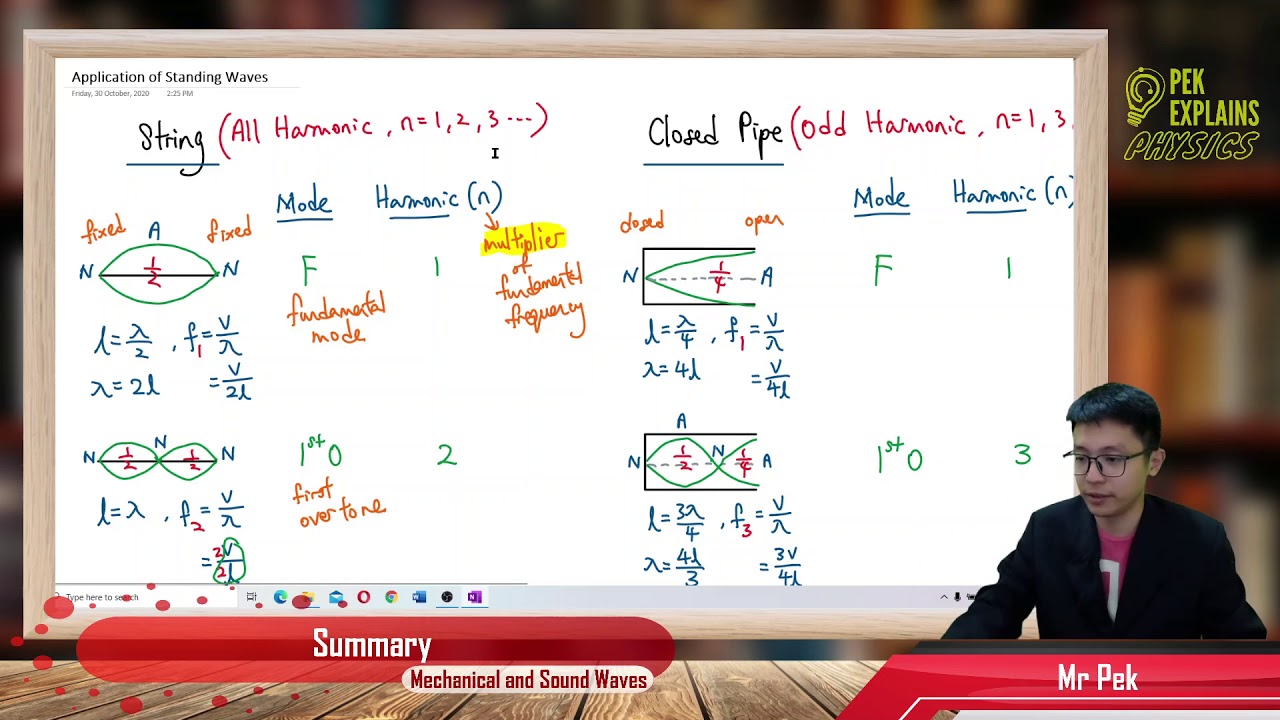 Application of Standing Waves
Friday, 30 October, 2020 2:25 PM
PEK
EXPLAINS
PHYSICS
String (All Harmonic, n=1, 2, 3 ...)
Mode Harmonic (n)
multiplier
of
fundamental
frequency
fixed A fixed
N 1/2 N
F 1
fundamental
mode
l = λ/2 , f₁ = v/λ
λ = 2l = v/2l
N 1/2 N 1/2 N
1st O 2
first
overtone
l = λ , f₂ = v/λ
= 2v/2l
Closed Pipe (Odd Harmonic, n=1, 3.
Mode Harmonic (n)
closed open
N 1/4 A
F 1
l = λ/4 , f₁ = v/λ
λ = 4l = v/4l
A
N 1/2 N 1/4 A
1st O 3
l = 3λ/4 , f₃ = v/λ
λ = 4l/3 = 3v/4l
Type here to search
Summary
Mechanical and Sound Waves
Mr Pek